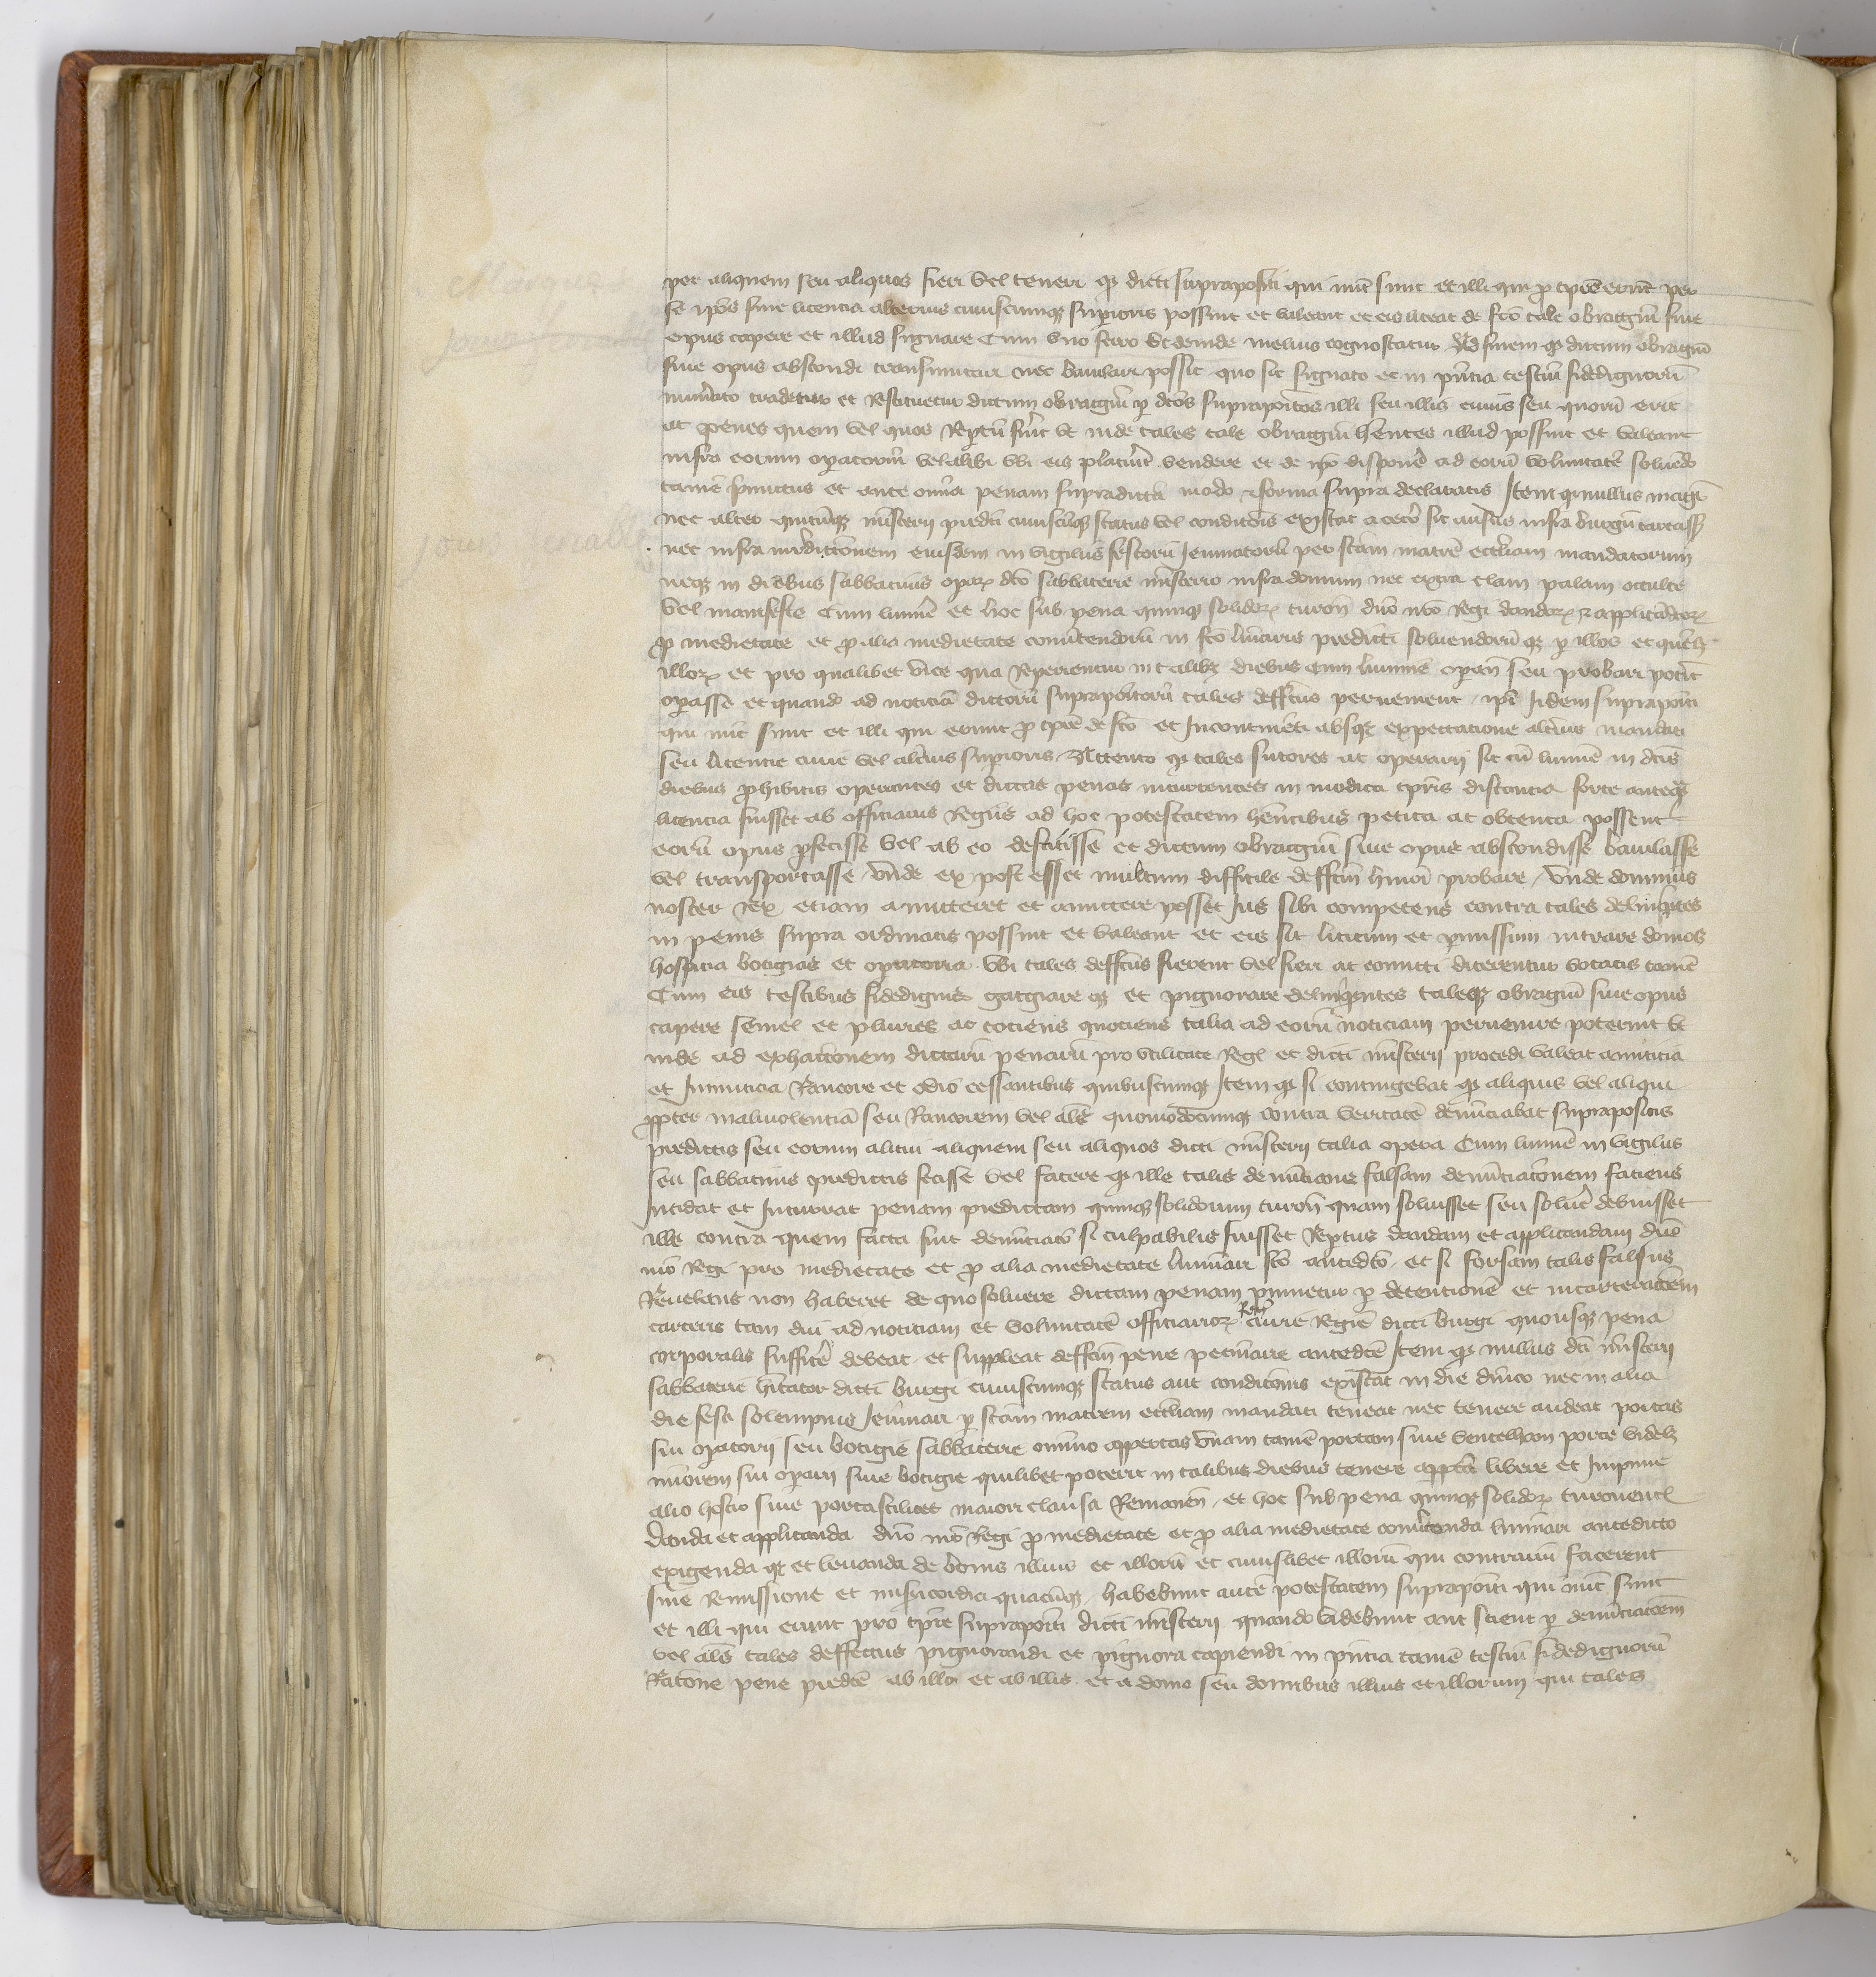 per aliquem seu aliquos fieri vel teneri qd dicti suprapositi qui nūc sunt et illi qui pro tpre erūt per
se ipos sine licencia alterius cuiuscumqz supioris possint et valeant et eis liceat de fcō tale obratgiū sive
opus capere et illud signare Cum vno ferro vt deinde melius cognoscatur Ad finem qd dictum obragiū
sive opus abscondi transmutari nec baiulari possit quo sic signato et in pn̄tia testiū fidedignorū
tradetur et restituetur dictum obratgiū p dcōs supraporitos illi seu illis cuius seu quorū erit
ac penes quem vel quos Reptū fūit vt inde tales tale obratgiū hēntes illud possint et valeant
infra eorum opatoriū vel alibi vbi eis placūit vendere et de ipo disponē ad eorū voluntatē soluēdo
tamē primitus et ante omīa penam supradictā modo et forma supra declaratis Item qd nullus magr̄
nec alter quicūqz mīsterij predcī cuiuscūqz status vel condicōis existat a cetō sit ausus infra burgū carcassē
nec infra iurisdicōonem eiusdem in vigiliis festorū Ieiunatorū per scām matrē ecclīam mandatorum
neqz in diebus sabbatinis opar dcō sabbaterie mīsterio infra domum nec extra clam palam occulte
vel manifeste Cum lumīe et hoc sub pena quinqz solidor turoñ dnō nrō Regi dandor et applicādor
p medietate et p alia medietate conūtendorū in fcō luīaris predicti soluendorū qz p illos et quēlz
illor et pro qualibet vice qua Reperientur in talibz diebus cum lumine opañ seu probari potīt
opasse et quando ad noticiā dictorū supraporitorū tales deffcūs peruenient ipi Iidem supraporiti
qui nūc sunt et illi qui erunt p tpre de fcō et Incontinēti absqz expectatione altius mandati
seu licencie curie vel altius supioris Attento qd tales sutores ac operarij sic cū lumīe in dcīs
diebus phibitis operantes et dictas penas incurrentes in modica tpris distancia forte anteqz
licencia fuisset ab officiariis Regiis ad hoc potestatem hēntibus petita ac obtenta possent
eorū opus pfecisse vel ab eo destitisse et dictum obratgiū sive opus abscondisse baiulasse
vel transportasse vnde ex post esset multum difficile deffcūm hmōi probare vnde dominus
noster Rex etiam amitteret et amittere posset Ius sibi competens contra tales delinqn̄tes
in penis supra ordinatis possint et valeant et eis sit licitum et pmissum intrare domos
hospicia botigias et operatoria vbi tales deffcūs fierent vel fieri ac comitti dicerentur vocatis tamē
Cum eis testibus fidedignis gatgiare qz et pignorare delinqūentes taleqz obragiū sive opus
capere semel et plures ac tociens quociens talia ad eorū noticiam peruenire poterint vt
inde ad exhactionem dictarū penarū pro vtilitate Regl et dicti mīsterij procedi valeat amiticia
et Inimiticia Rancore et odio cessantibus quibuscumqz Item qd si contingebat qd aliquis vel aliqui
ppter maliuolentiā seu Rancorem vel ałs quomodocumqz contra veritatē denūciabat suprapositis
predictis seu eorum alicui aliquem seu aliquos dicti mīsterij talia opera Cum lumīe in vigiliis
seu sabbatinis predictis fecisse vel facere qd ille talis falsam denūciatōnem faciens
Incidat et Incurrat penam predictam quinqz solidorum turoñ quam soluisset seu soluē debuisset
ille contra quem facta fuit denūciatō si culpabilis fuisset Reptus dandam et applicandam dnō
nrō Regi pro medietate et p alia medietate luminari fcō antedcō et si forsam talis falsus
Reuelans non haberet de quo soluere dictam penam punietur p detentionē et incarceracōem
carceris tam diu ad noticiam et voluntatē officiarior curie Regie dicti burgi quousqz pena
corporalis sufficē debeat et suppleat deffcūm pene pecūiarie antedcē Item qd nullus dcī mīsterij
sabbaterie hītator dicti burgi cuiuscumqz status aut condicōnis existat in die dnīco nec in alia
die festi solempnis Ieiunari p scām matrem ecclīam mandati teneat nec tenere audeat portas
sui opatorij seu botigie sabbaterie omīno appertas vnam tamē portam sive porte videlz
miōrem sui oparij sive botigie quilibet poterit in talibus diebus tenere apptā libere et Impune
alio hostio sive porta scilicet maiori clausa Remaneñ et hoc sub pena quinqz solidor turonencl
danda et applicanda dnō nrō Regi p medietate et p alia medietate conūtenda luminari antedicto
exigenda qz et leuanda de bonis illius et illorū et cuiuslibet illorū qui contrariū facerent
sine Remissione et misericordia quacūqz habebunt autē potestatem supraporiti qui nūc sunt
et illi qui erunt pro tpre supraporiti dicti mīsterij quando videbunt aut scient p denūciacōem
vel ałs tales deffectus pignorandi et pignora capiendi in pn̄tia tamē testiū fidedignorū
Ratōne pene predcē ab illo et ab illis et a domo seu domibus illius et illorum qui tales